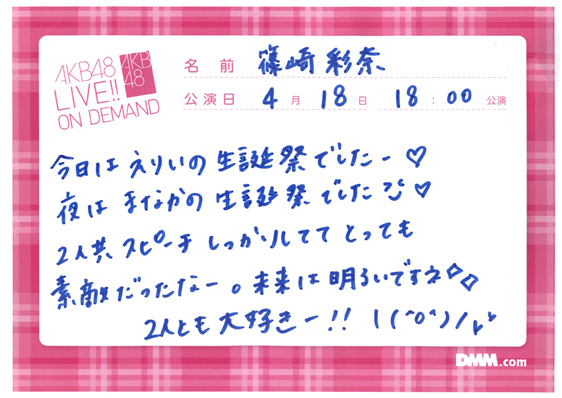 AKB48
LIVE!!
ON DEMAND
AKB
48
名前 篠崎彩奈
公演日 4月18日 18:00公演
今日はえりいの生誕祭でしたー♡
夜はまなかの生誕祭でした♡
2人共スピーチしっかりしててとっても
素敵だったなー。未来は明るいですネ
2人とも大好きー!! \(^o^)/
DMM.com